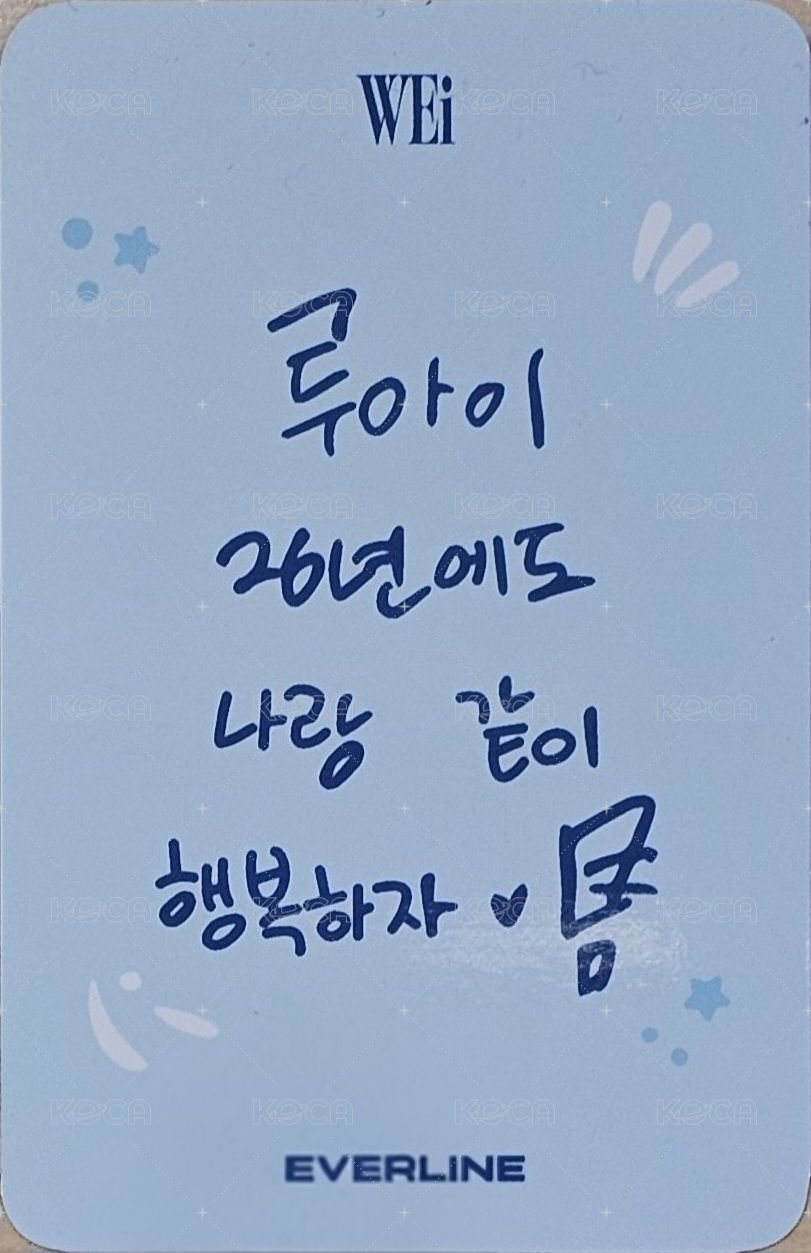 WEi
KOCA KOCA KOCA KOCA
KOCA KOCA KOCA KOCA
루아이
KOCA KOCA KOCA KOCA
26년에도
KOCA KOCA KOCA KOCA
나랑 같이
행복하자 ♥
KOCA KOCA KOCA KOCA
KOCA KOCA KOCA KOCA
EVERLINE